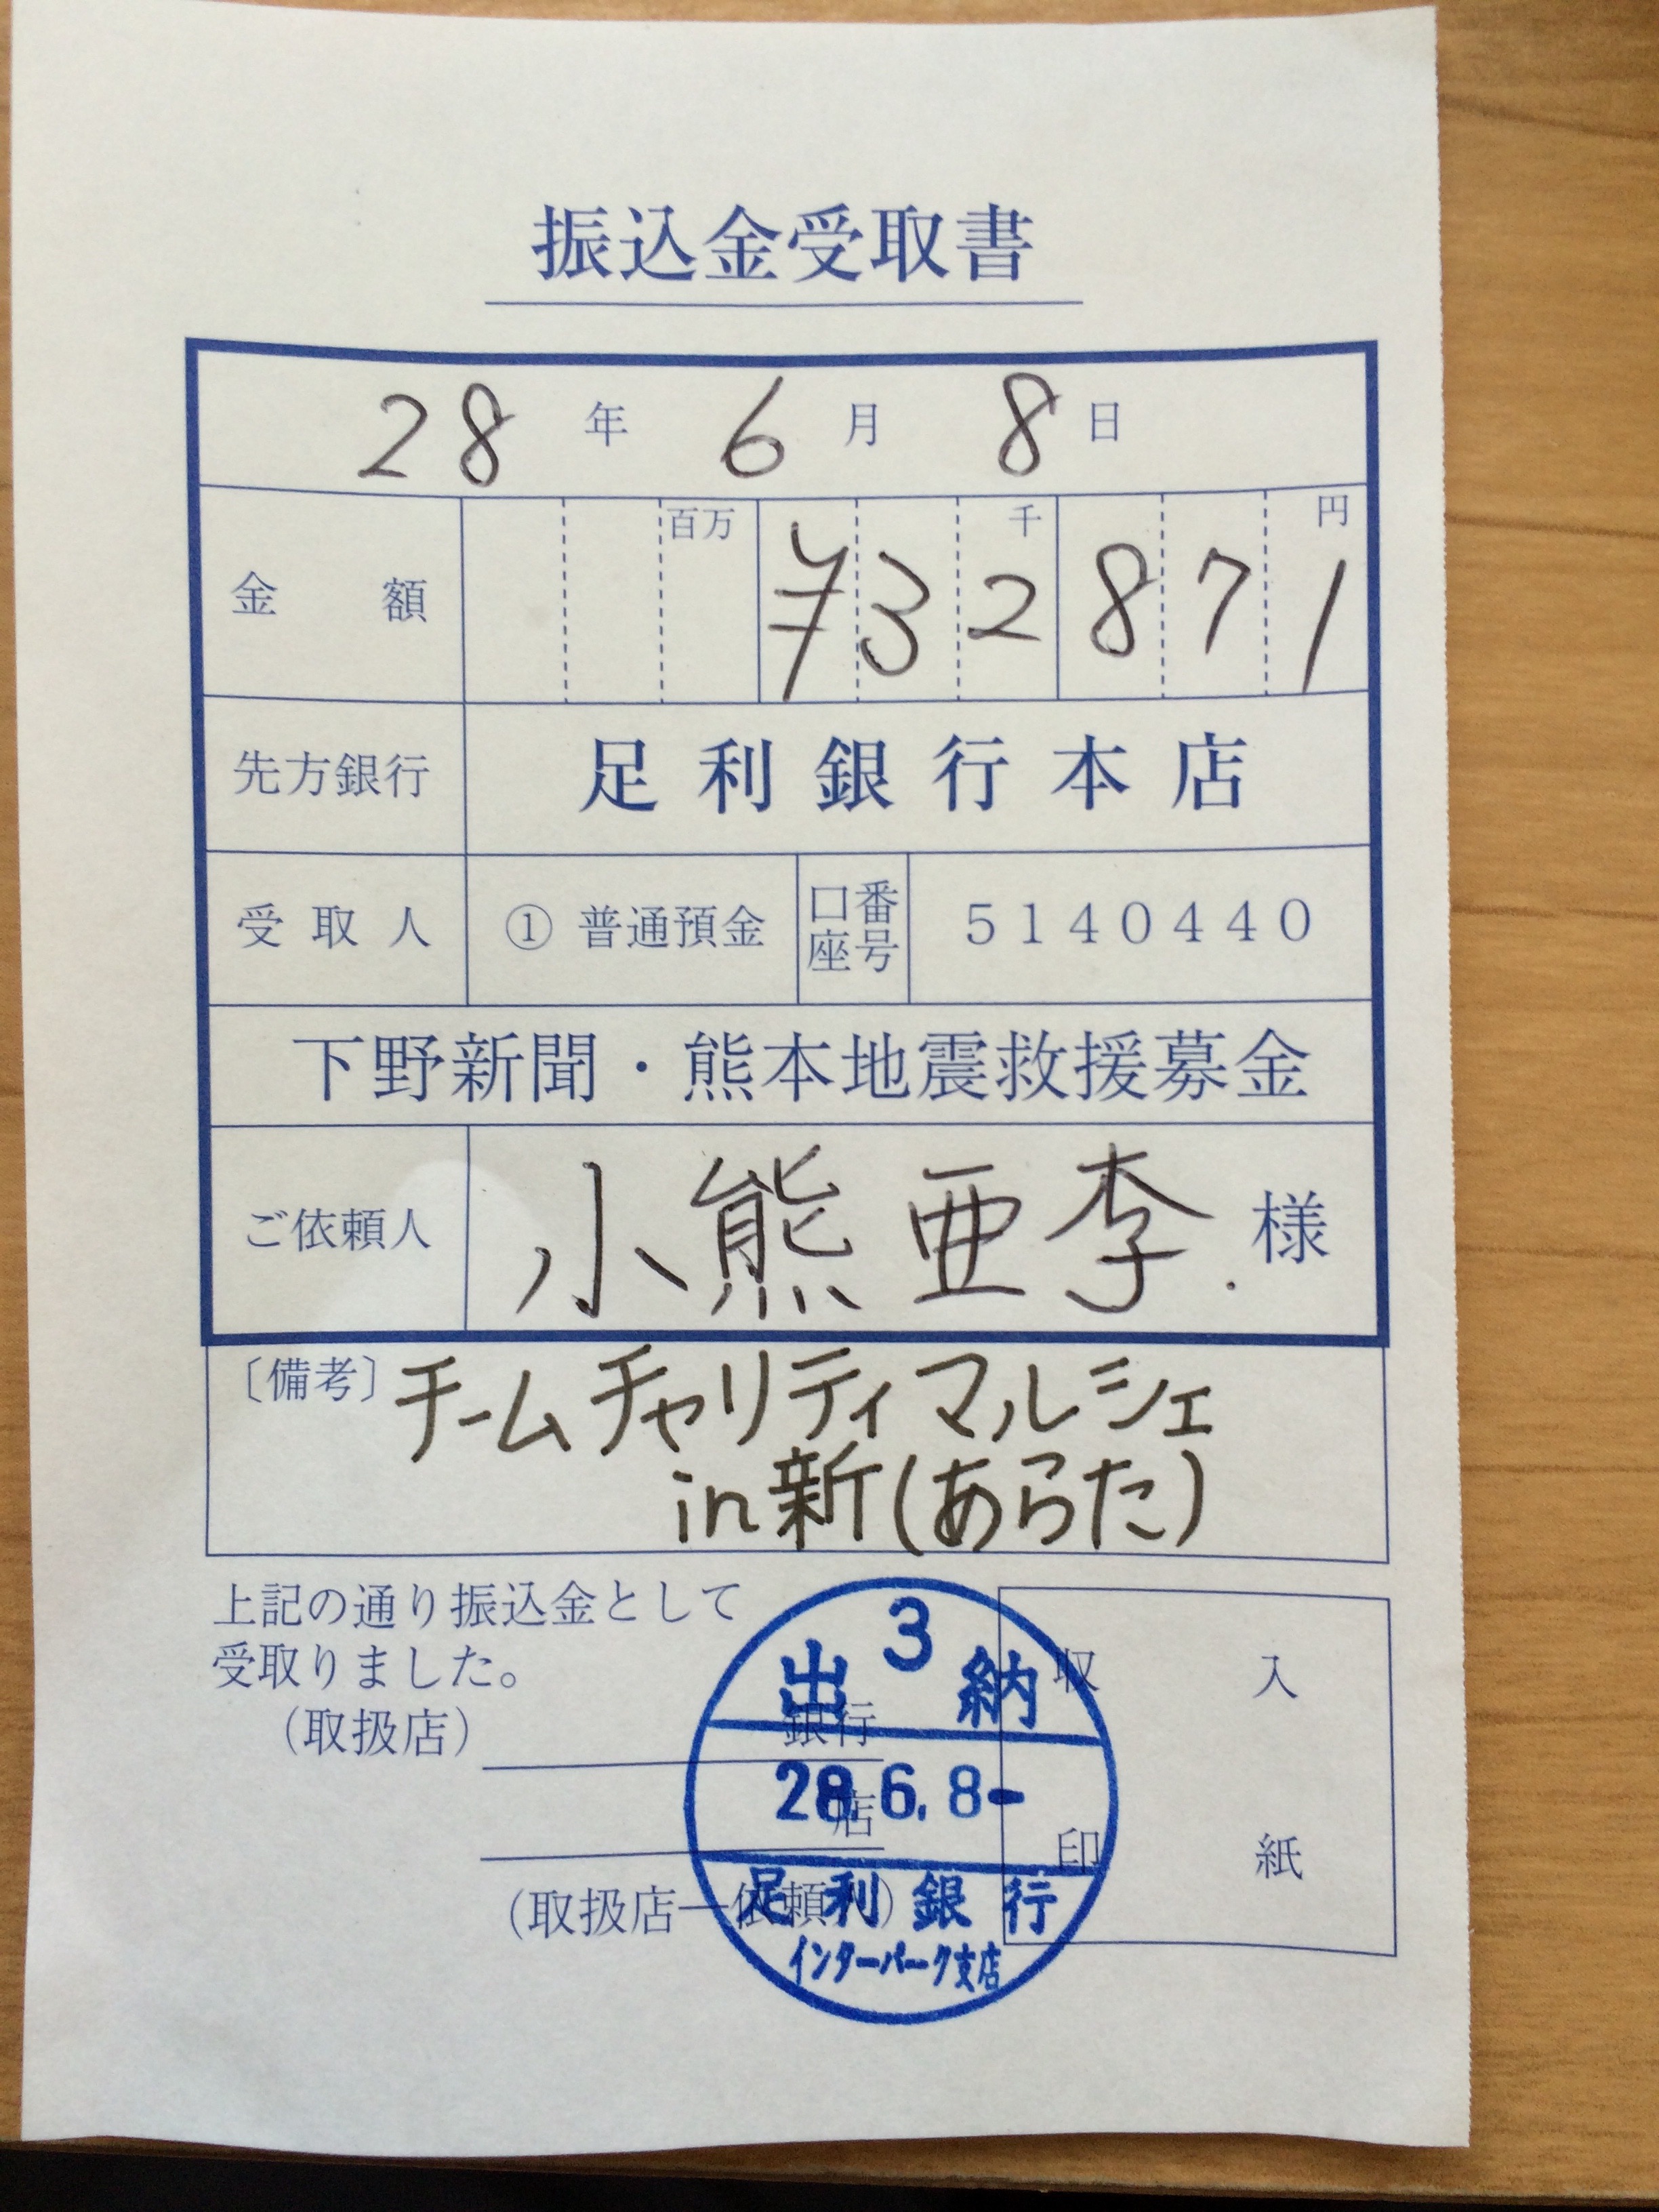 振込金受取書
28 年 6 月 8 日
金額 百万 千 円 ¥32871
先方銀行 足利銀行本店
受取人 ① 普通預金 口座番号 5140440
下野新聞・熊本地震救援募金
ご依頼人 小熊亜李 様
〔備考〕チームチャリティマルシェ
in新(あらた)
上記の通り振込金として
受取りました。
(取扱店) 銀行
店
(取扱店―依頼人)
収入
印紙
3
出納
28.6.8-
足利銀行
インターパーク支店